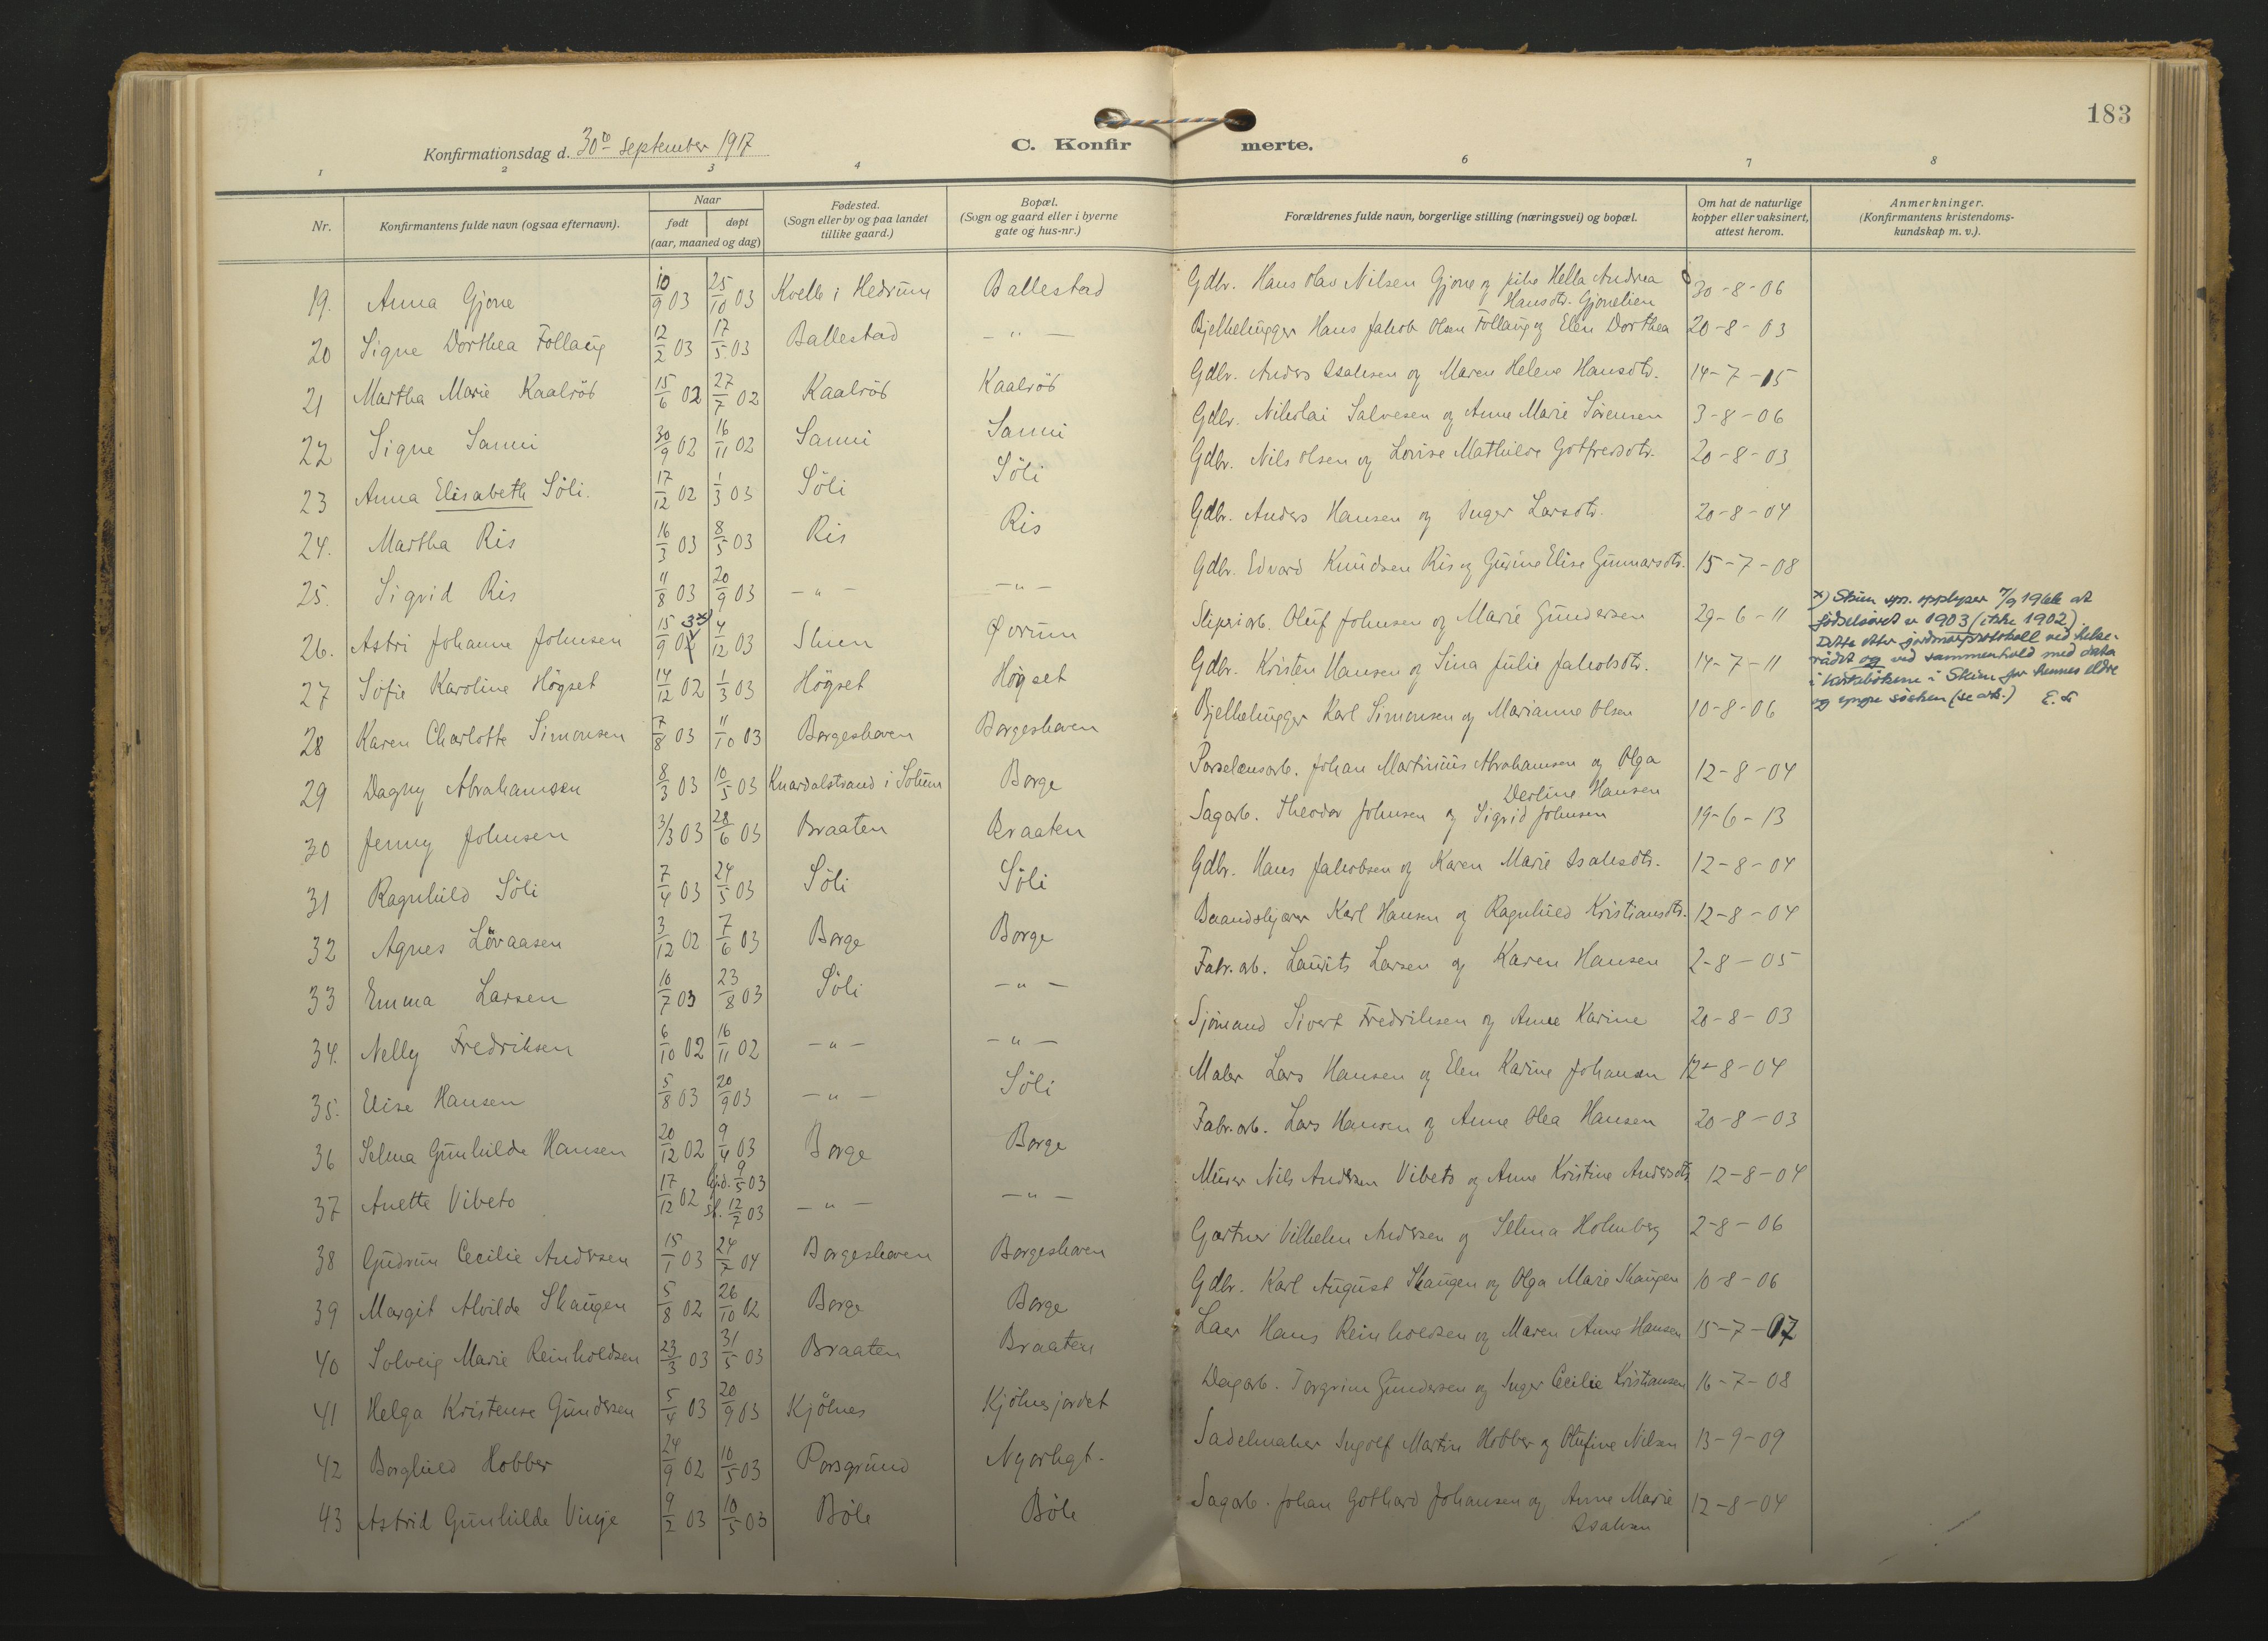 183
Konfirmationsdag d. 30te september 1917
C. Konfirmerte.
1 2 3 4 6 7 8
Nr. Konfirmantens fulde navn (ogsaa efternavn). Naar født døpt (aar, maaned og dag) Fødested. (Sogn eller by og paa landet tillike gaard.) Bopæl. (Sogn og gaard eller i byerne gate og hus-nr.) Forældrenes fulde navn, borgerlige stilling (næringsvei) og bopæl. Om hat de naturlige kopper eller vaksinert, attest herom. Anmerkninger. (Konfirmantens kristendoms-kundskap m. v.).
19. Anna Gjone 10/9 03 25/10 03 Kvelle i Hedrum Ballestad Gdbr. Hans Olav Nilsen Gjone og Hella Andrea Hansdtr. Gjonelien 30-8-06
20 Signe Dorthea Follaug 12/2 03 17/5 03 Ballestad -"- Bjelkehugger Hans Jakob Olsen Follaug og Elen Dorthea 20-8-03
21 Martha Marie Kaalröd 15/6 02 27/7 02 Kaalröd Kaalröd Gdbr. Anders Isaksen og Maren Helene Hansdtr. 14-7-15
22 Signe Sanni 30/9 02 16/11 02 Sanni Sanni Gdbr. Nikolai Salvesen og Anne Marie Sörensen 3-8-06
23 Anna Elisabeth Söli. 17/12 02 1/3 03 Söli Söli Gdbr. Nils Olsen og Lovise Mathilde Gotfredsdtr. 20-8-03
24. Martha Ris 16/3 03 8/5 03 Ris Ris Gdbr. Anders Hansen og Inger Larsdtr. 20-8-04
25. Sigrid Ris 11/8 03 20/9 03 -"- -"- Gdbr. Edvard Knudsen Ris og Gurine Elise Gunnarsdtr. 15-7-08
26. Astri Johanne Johnsen 15/9 02 3x) 4/12 03 Skien Øvrum Sliperiarb. Oluf Johnsen og Marie Gundersen 29-6-11 x) Skien spr. opplyser 7/9 1966 at fødselsåret er 1903 (ikke 1902). Dette etter jordmorprotokoll ved helserådet og ved sammenhold med data i kirkebökene i Skien for hennes eldre og yngre sösken (se ark.) E. S.
27 Sofie Karoline Högset 14/12 02 1/3 03 Högset Högset Gdbr. Kristen Hansen og Sina Julie Jakobsdtr. 14-7-11
28 Karen Charlotte Simonsen 7/8 03 11/10 03 Borgeskaven Borgeskaven Bjelkehugger Karl Simonsen og Marianne Olsen 10-8-06
29 Dagny Abrahamsen 8/3 03 10/5 03 Knardalstrand i Solum Borge Porselænsarb. Johan Martinius Abrahamsen og Olga Hansen 12-8-04
30 Jenny Johnsen 3/3 03 28/6 03 Braaten Braaten Sagarb. Theodor Johnsen og Sigrid Johnsen 19-6-13
31 Ragnhild Söli 7/4 03 24/5 03 Söli Söli Gdbr. Hans Jakobsen og Karen Marie Isaksdtr. 12-8-04
32 Agnes Lövaasen 3/12 02 7/6 03 Borge Borge Baandskjærer Karl Hansen og Ragnhild Kristiansdtr. 12-8-04
33 Emma Larsen 10/7 03 23/8 03 Söli -"- Fabr. arb. Laurits Larsen og Karen Hansen 2-8-05
34. Nelly Fredriksen 6/10 02 16/11 02 -"- -"- Sjömand Sivert Fredriksen og Anne Karine 20-8-03
35. Elise Hansen 5/8 03 20/9 03 -"- Söli Maler Lars Hansen og Elen Karine Johansen 12-8-04
36 Selma Gunhilde Hansen 20/12 02 9/4 03 Borge Borge Fabr. arb. Lars Hansen og Anne Olea Hansen 20-8-03
37 Anette Vibeto 17/12 02 hjd. 9/5 03 st. 12/7 03 -"- -"- Murer Nils Andersen Vibeto og Anne Kristine Andersdtr. 12-8-04
38 Gudrun Cecilie Andersen 15/1 03 24/7 04 Borgeskaven Borgeskaven Gartner Vilhelm Andersen og Selma Holmberg 2-8-06
39 Margit Alvilde Skaugen 5/8 02 26/10 02 Borge Borge Gdbr. Karl August Skaugen og Olga Marie Skaugen 10-8-06
40 Solveig Marie Reinholdsen 23/3 03 31/5 03 Braaten Braaten Hans Reinholdsen og Maren Anne Hansen 15-7-07
41 Helga Kristense Gundersen 5/4 03 20/9 03 Kjölnes Kjölnesjordet Dagarb. Torgrim Gundersen og Inger Cecilie Kristiansen 16-7-08
42 Borghild Hobber 24/9 02 10/5 03 Porsgrund Nyorligt. Sadelmaker Ingolf Martin Hobber og Olufine Nilsen 13-9-09
43 Astrid Gunhilde Vinje 9/2 03 10/5 03 Böle Böle Sagarb. Johan Gothard Johansen og Anne Marie Isaksen 12-8-04